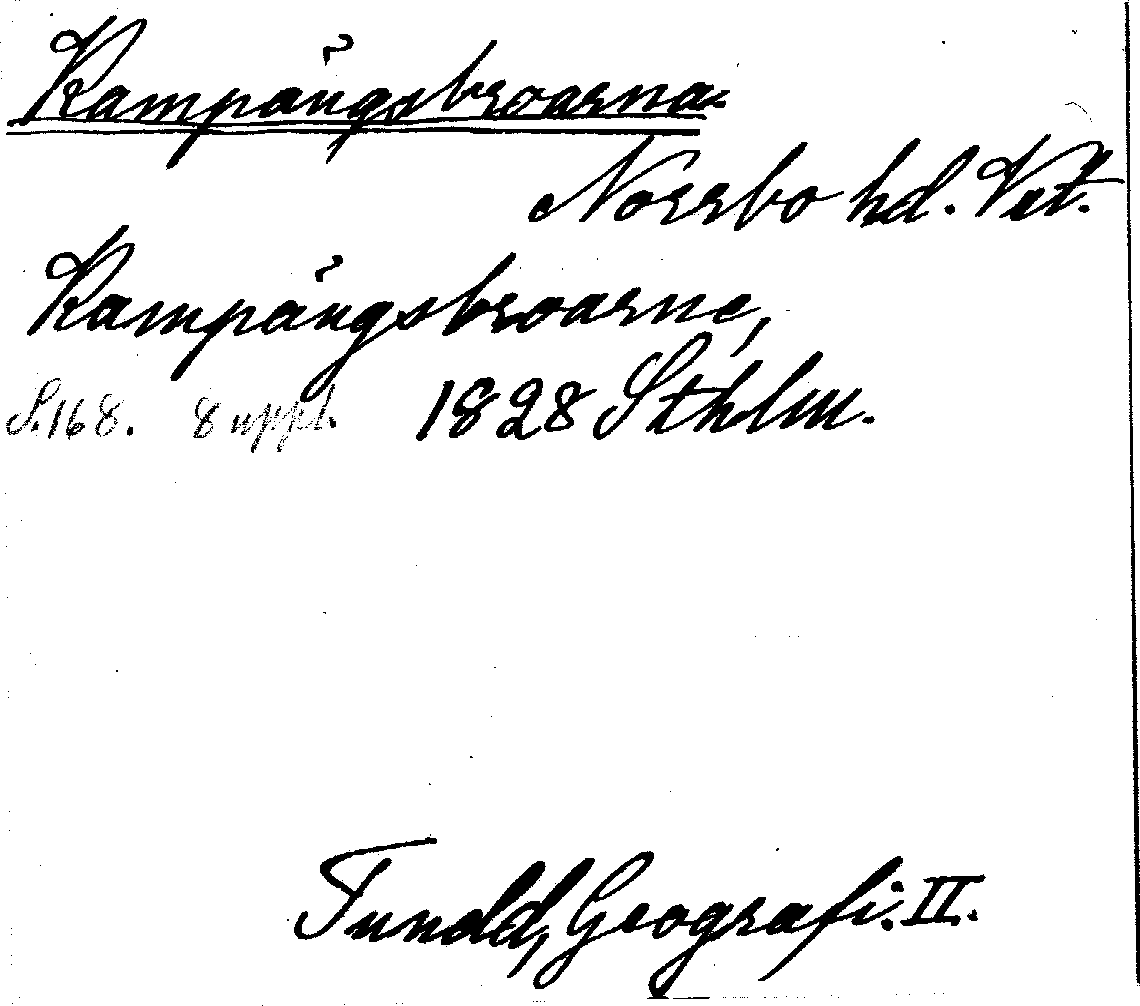 Kampångsbroarna.
Norrbo hd. Vstl.
Kampångsbroarne,
S. 168. 8 uppl. 1828 Sthlm.
Tundd, Geografi. II.